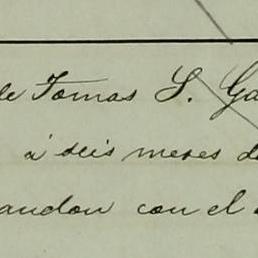 de Tomas S. Ga
á seis meses de
andon con el